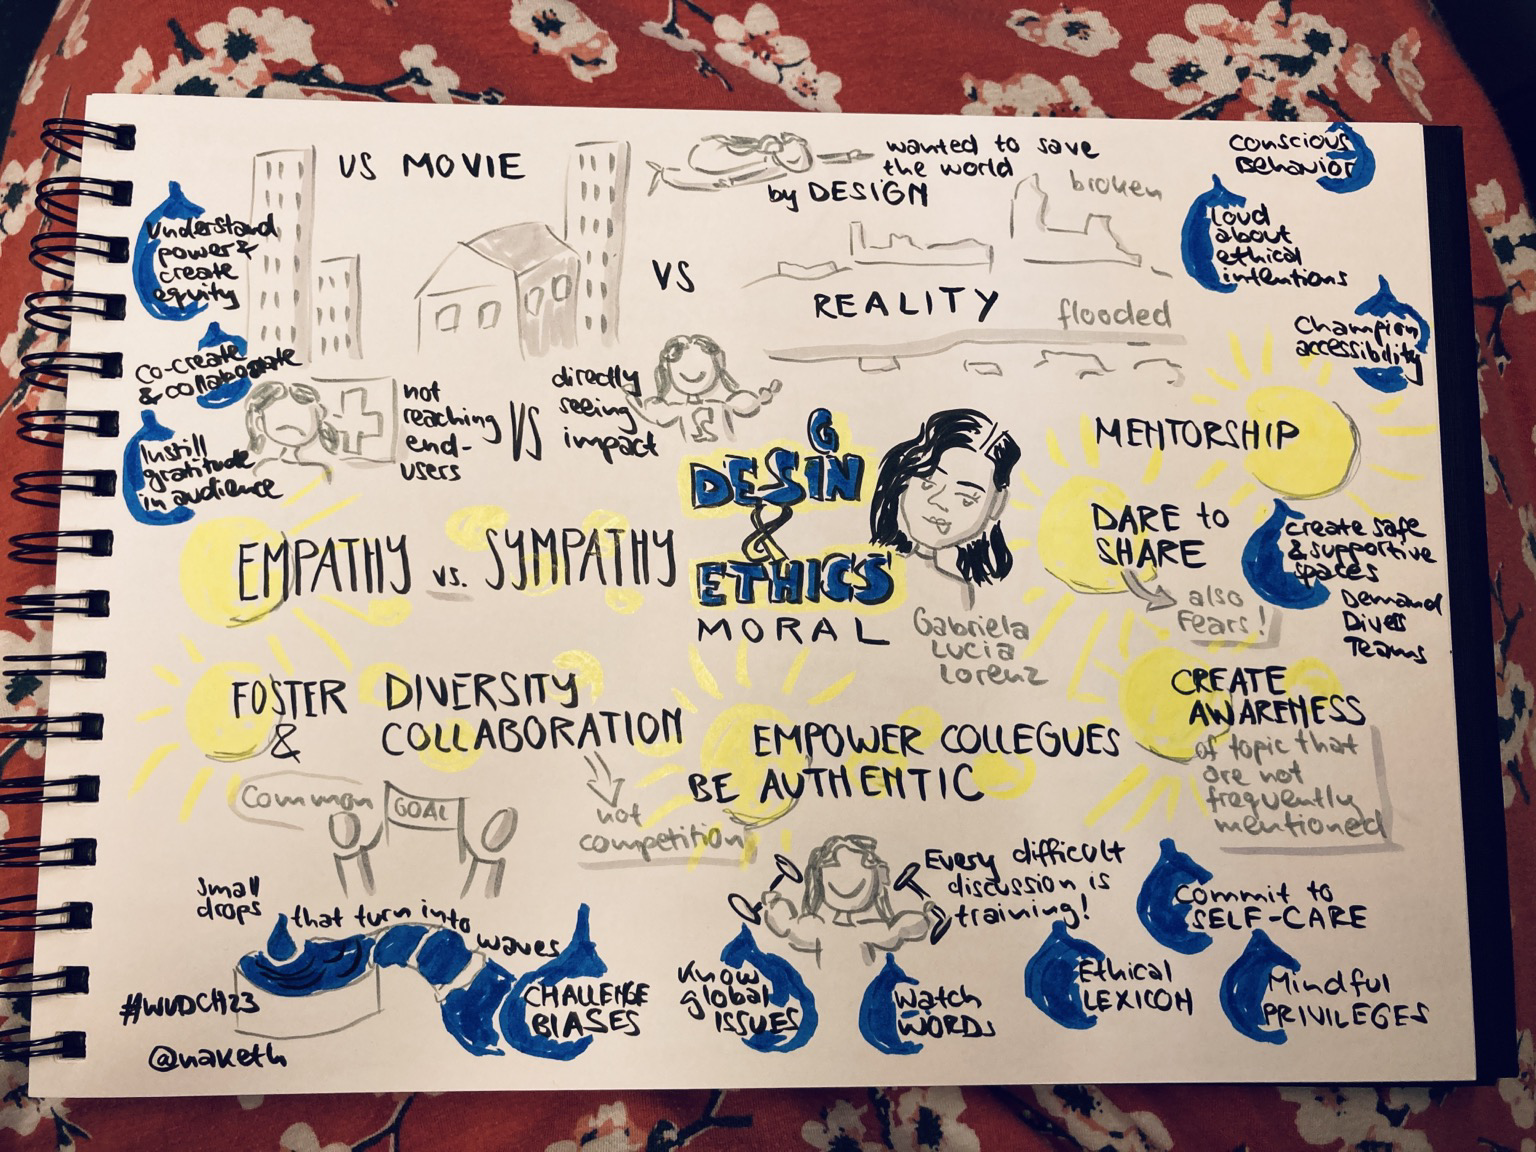 US MOVIE
wanted to save
the world
by DESIGN
broken
conscious
Behavior
understand
power &
create
equity
VS
REALITY
flooded
Loud
about
ethical
intentions
Champion
accessibility
Co-create
& collaborate
Instill
gratitude
in audience
not
reaching
end-
users
VS
directly
seeing
impact
G
DESIN
&
ETHICS
MORAL
Gabriela
Lucia
Lorenz
MENTORSHIP
DARE to
SHARE
also
Fears!
create safe
& supportive
spaces
Demand
Divers
Teams
EMPATHY vs. SYMPATHY
FOSTER DIVERSITY
& COLLABORATION
not
competition
Common GOAL
EMPOWER COLLEGUES
BE AUTHENTIC
CREATE
AWARENESS
of topic that
are not
frequently
mentioned
Every difficult
discussion is
training!
Small
drops
that turn into
waves
CHALLENGE
BIASES
Know
global
ISSUES
Watch
WORDS
Ethical
LEXICON
Commit to
SELF-CARE
Mindful
PRIVILEGES
#WUDCH23
@naketh